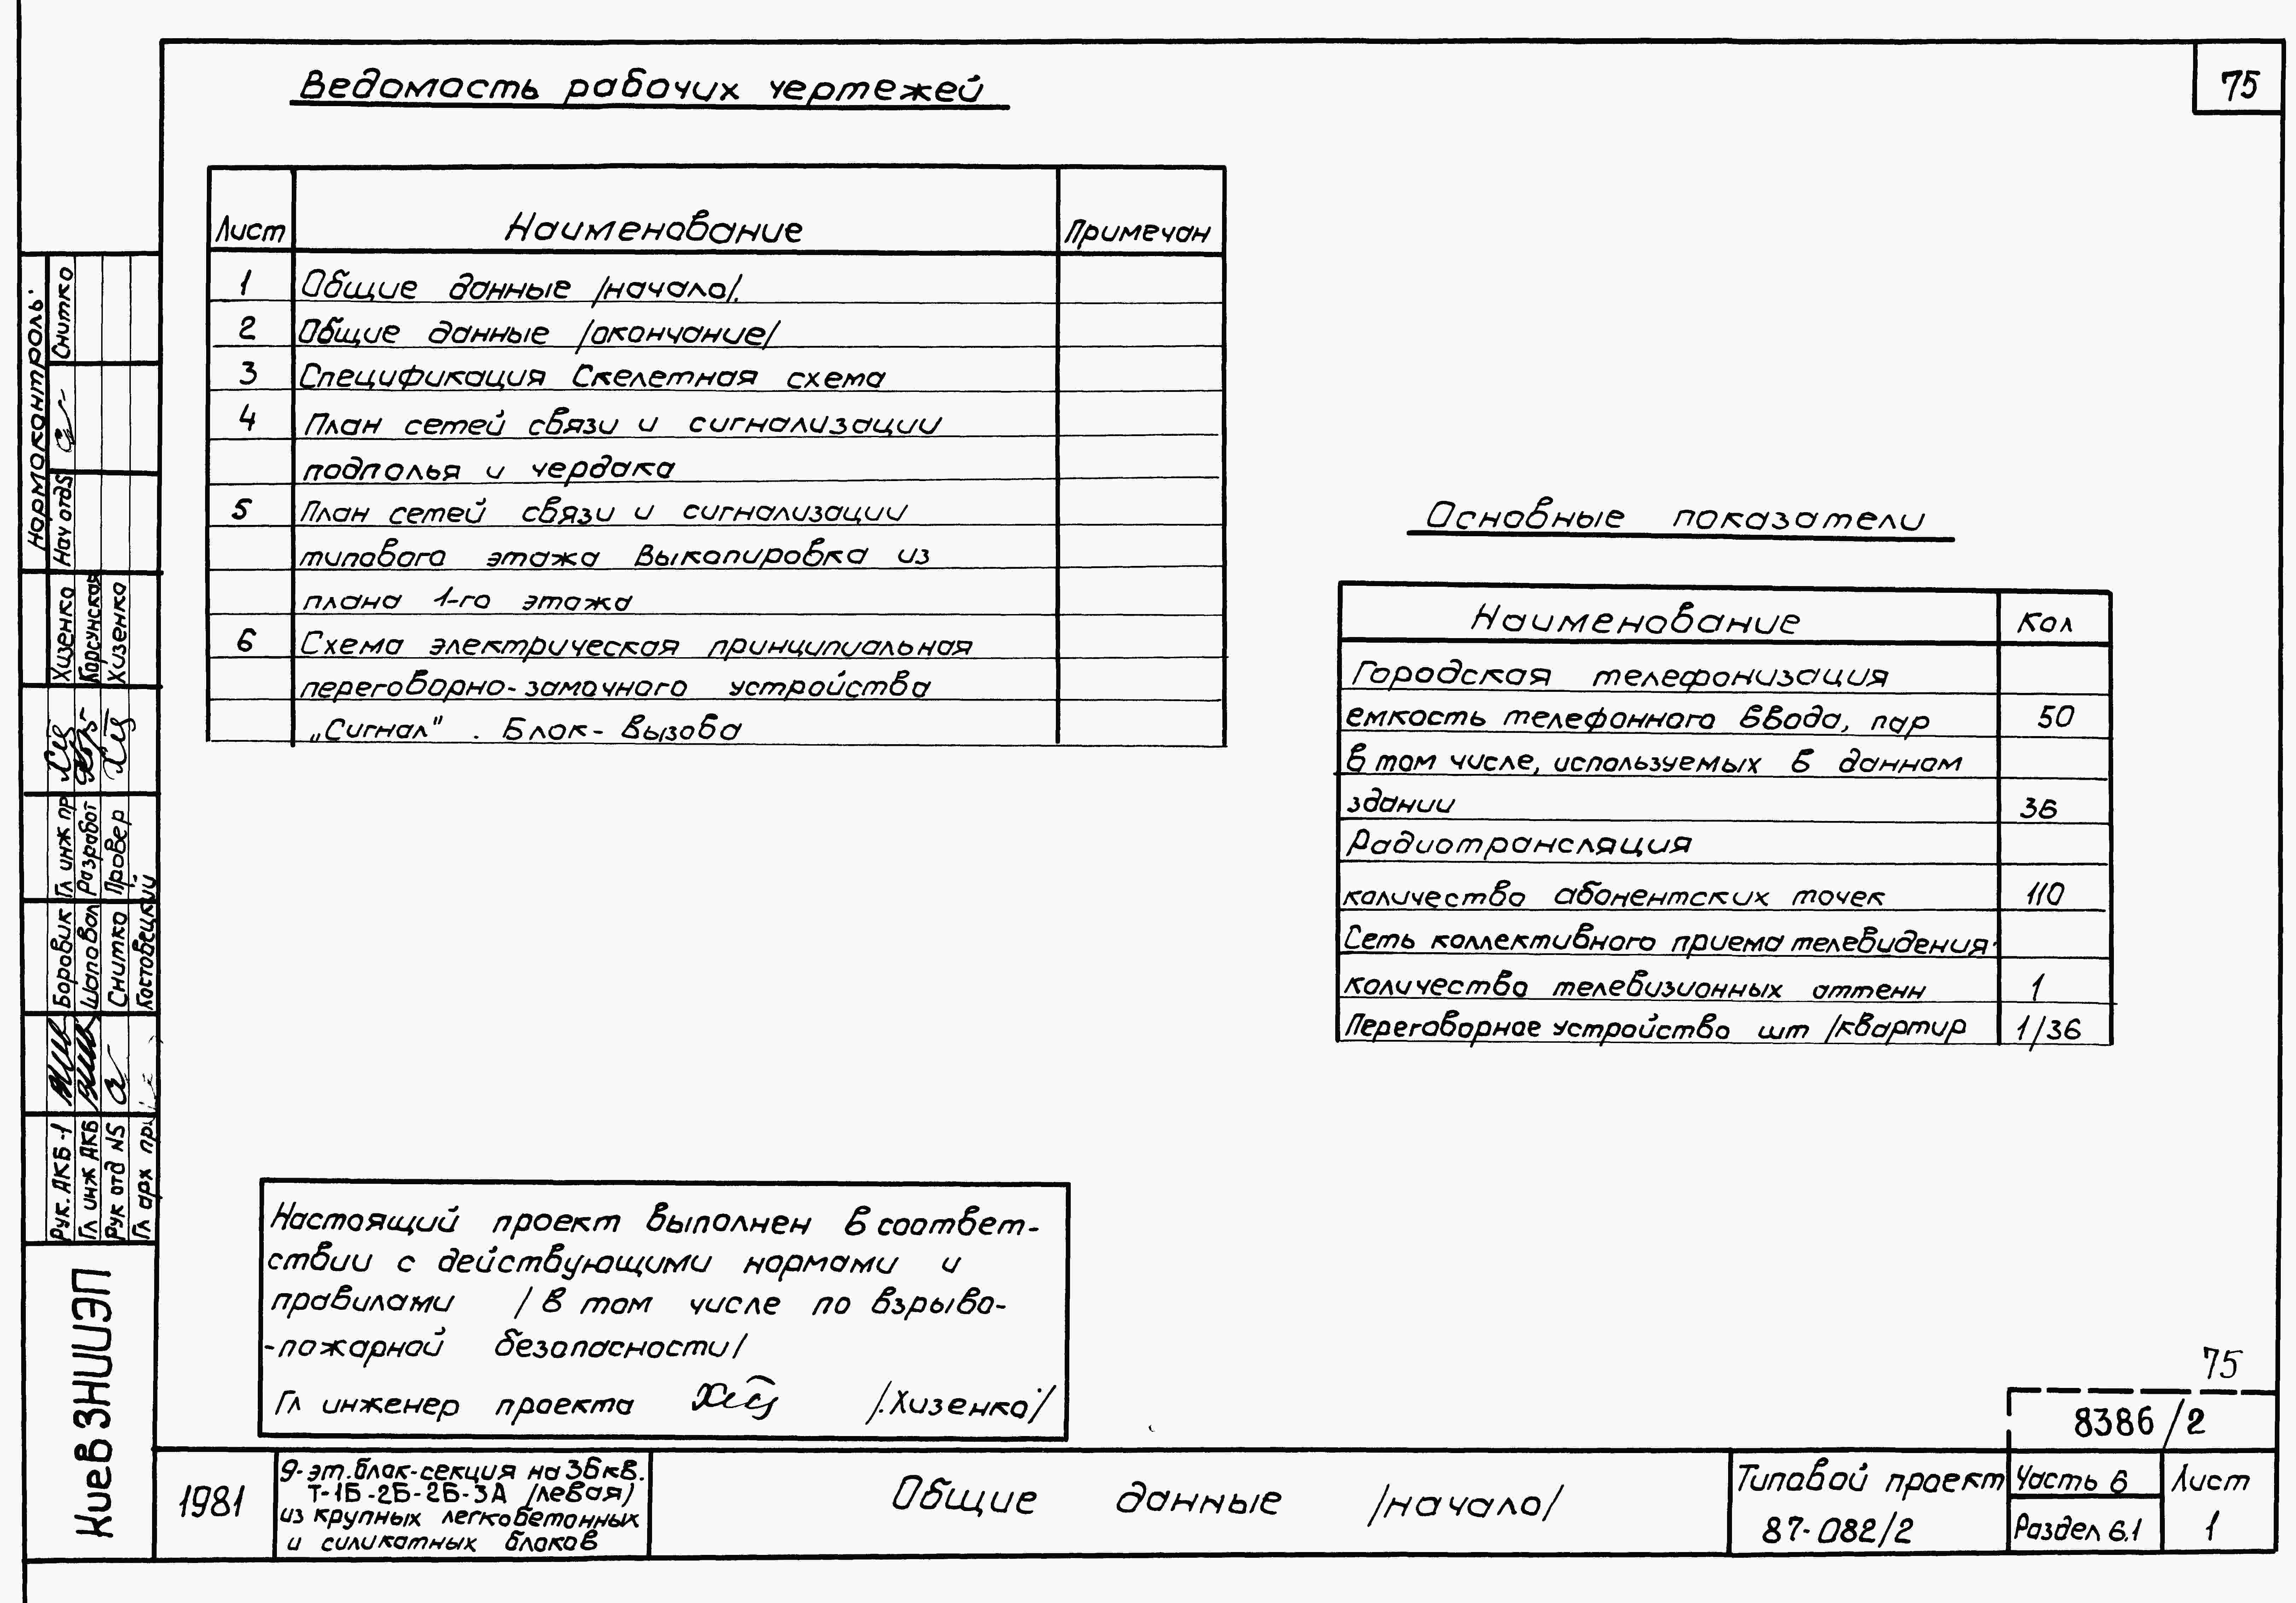 75
Ведомость рабочих чертежей
Лист Наименование Примечан
1 Общие данные /начало/.
2 Общие данные /окончание/
3 Спецификация Скелетная схема
4 План сетей связи и сигнализации
подполья и чердака
5 План сетей связи и сигнализации
типового этажа Выкопировка из
плана 1-го этажа
6 Схема электрическая принципиальная
переговорно-замочного устройства
„Сигнал". Блок-вызова
Основные показатели
Наименование Кол
Городская телефонизация
емкость телефонного ввода, пар 50
в том числе, используемых в данном
здании 36
Радиотрансляция
количество абонентских точек 110
Сеть коллективного приема телевидения
количество телевизионных аттенн 1
Переговорное устройство шт /квартир 1/36
Настоящий проект выполнен в соответ-
ствии с действующими нормами и
правилами /в том числе по взрыво-
-пожарной безопасности/
Гл инженер проекта /.Хизенко/
75
8386/2
1981
9-эт.блок-секция на 36 кв.
Т-1Б-2Б-2Б-3А /левая)
из крупных легкобетонных
и силикатных блоков
Общие данные /начало/
Типовой проект
87-082/2
Часть 6
Раздел 6.1
Лист
1
КиевЗНИИЭП
Нормоконтроль
Нач отд5 Снитко
Рук. АКБ-1 Боровик Гл инж пр Хизенко
Гл инж АКБ Шаповал Разработ Корсунская
Рук отд N5 Снитко Провер Хизенко
Гл арх пр Костовецкий